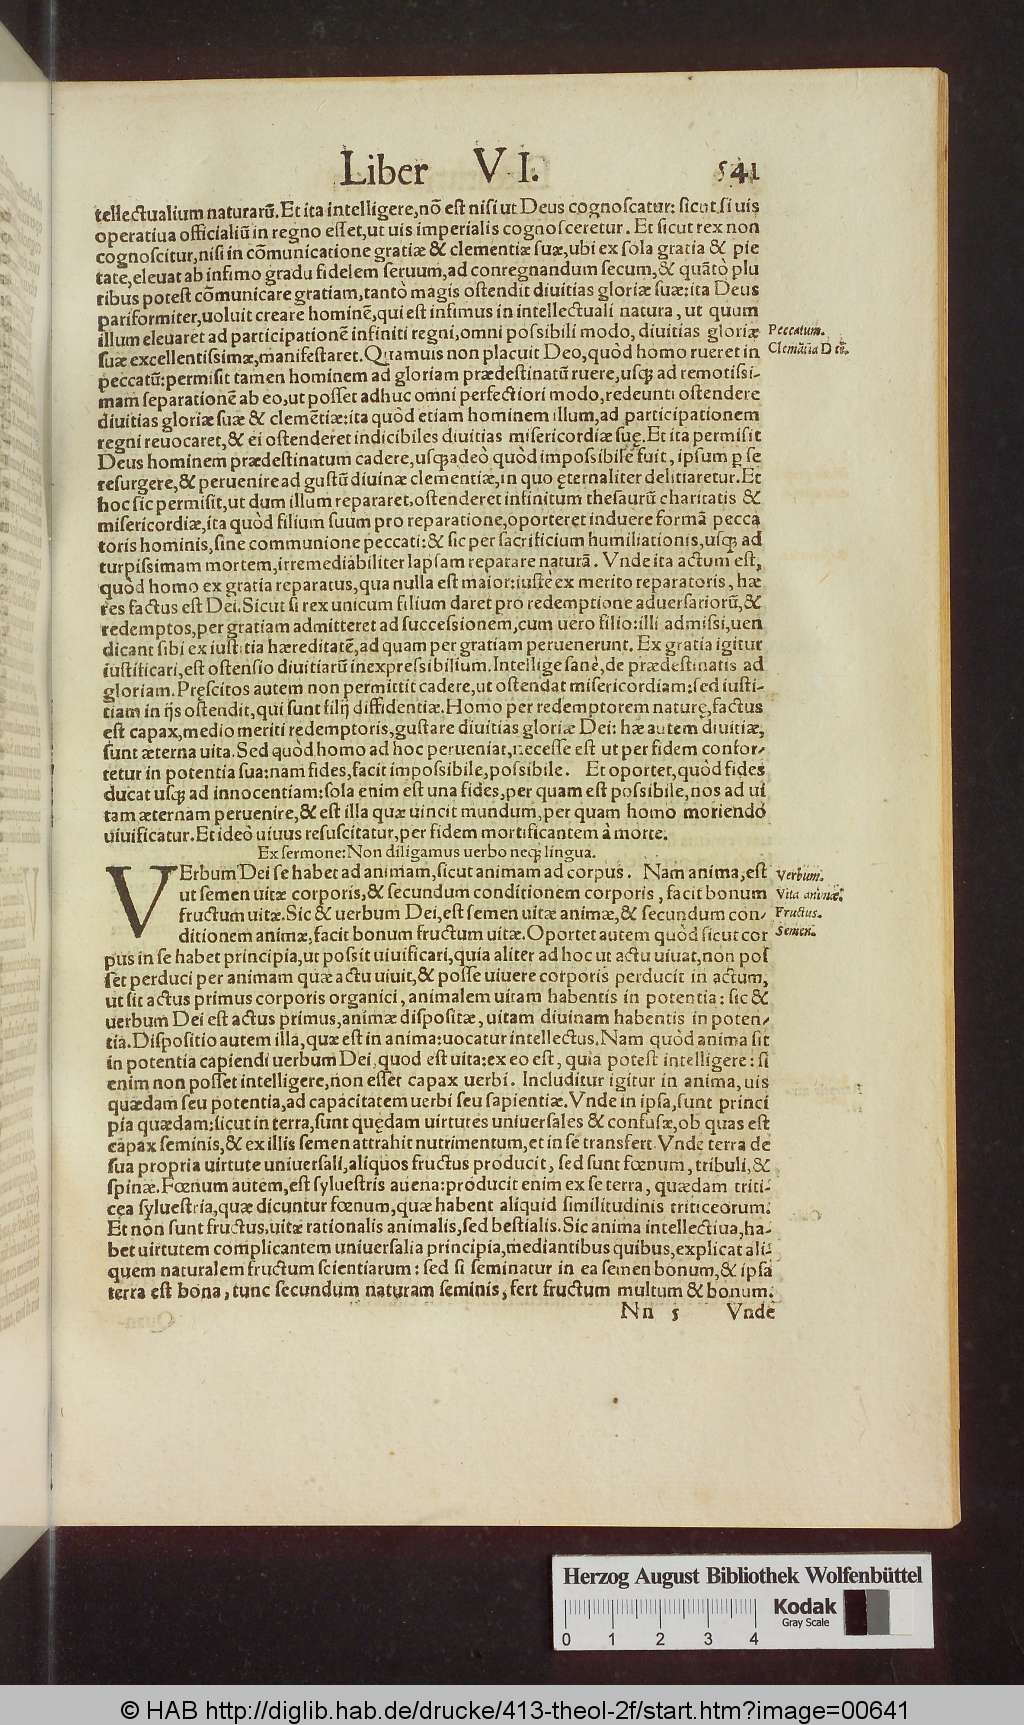 Liber VI. 541
tellectualium naturarū. Et ita intelligere, nō est nisi ut Deus cognoscatur: sicut si uis
operatiua officialiū in regno esset, ut uis imperialis cognosceretur. Et sicut rex non
cognoscitur, nisi in cōmunicatione gratiæ & clementiæ suæ, ubi ex sola gratia & pie
tate, eleuat ab infimo gradu fidelem seruum, ad conregnandum secum, & quātò plu
ribus potest cōmunicare gratiam, tantò magis ostendit diuitias gloriæ suæ: ita Deus
pariformiter, uoluit creare hominē, qui est infimus in intellectuali natura, ut quum
illum eleuaret ad participationē infiniti regni, omni possibili modo, diuitias gloriæ
Peccatum.
suæ excellentissimæ, manifestaret. Quamuis non placuit Deo, quòd homo rueret in
Clemētia Dei.
peccatū: permisit tamen hominem ad gloriam prædestinatū ruere, usq; ad remotissi-
mam separationē ab eo, ut posset adhuc omni perfectiori modo, redeunti ostendere
diuitias gloriæ suæ & clemētiæ: ita quòd etiam hominem illum, ad participationem
regni reuocaret, & ei ostenderet indicibiles diuitias misericordiæ suę. Et ita permisit
Deus hominem prædestinatum cadere, usq; adeò quòd impossibile fuit, ipsum ꝑ se
resurgere, & peruenire ad gustū diuinæ clementiæ, in quo ęternaliter delitiaretur. Et
hoc sic permisit, ut dum illum repararet, ostenderet infinitum thesaurū charitatis &
misericordiæ, ita quòd filium suum pro reparatione, oporteret induere formā pecca
toris hominis, sine communione peccati: & sic per sacrificium humiliationis, usq; ad
turpissimam mortem, irremediabiliter lapsam reparare naturā. Vnde ita actum est,
quòd homo ex gratia reparatus, qua nulla est maior: iustè ex merito reparatoris, hæ
res factus est Dei. Sicut si rex unicum filium daret pro redemptione aduersariorū, &
redemptos, per gratiam admitteret ad successionem, cum uero filio: illi admissi, uen
dicant sibi ex iustitia hæreditatē, ad quam per gratiam peruenerunt. Ex gratia igitur
iustificari, est ostensio diuitiarū inexpressibilium. Intellige sanè, de prædestinatis ad
gloriam. Pręscitos autem non permittit cadere, ut ostendat misericordiam: sed iusti-
tiam in ijs ostendit, qui sunt filij diffidentiæ. Homo per redemptorem naturę, factus
est capax, medio meriti redemptoris, gustare diuitias gloriæ Dei: hæ autem diuitiæ,
sunt æterna uita. Sed quòd homo ad hoc perueniat, necesse est ut per fidem confor-
tetur in potentia sua: nam fides, facit impossibile, possibile. Et oportet, quòd fides
ducat usq; ad innocentiam: sola enim est una fides, per quam est possibile, nos ad ui
tam æternam peruenire, & est illa quæ uincit mundum, per quam homo moriendo
uiuificatur. Et ideò uiuus resuscitatur, per fidem mortificantem à morte.
Ex sermone: Non diligamus uerbo neq; lingua.
VErbum Dei se habet ad animam, sicut animam ad corpus. Nam anima, est
Verbum.
ut semen uitæ corporis, & secundum conditionem corporis, facit bonum
Vita animæ.
fructum uitæ. Sic & uerbum Dei, est semen uitæ animæ, & secundum con-
Fructus.
ditionem animæ, facit bonum fructum uitæ. Oportet autem quòd sicut cor
Semen.
pus in se habet principia, ut possit uiuificari, quia aliter ad hoc ut actu uiuat, non pos
set perduci per animam quæ actu uiuit, & posse uiuere corporis perducit in actum,
ut sit actus primus corporis organici, animalem uitam habentis in potentia: sic &
uerbum Dei est actus primus, animæ dispositæ, uitam diuinam habentis in poten-
tia. Dispositio autem illa, quæ est in anima: uocatur intellectus. Nam quòd anima sit
in potentia capiendi uerbum Dei, quod est uita: ex eo est, quia potest intelligere: si
enim non posset intelligere, non esset capax uerbi. Includitur igitur in anima, uis
quædam seu potentia, ad capacitatem uerbi seu sapientiæ. Vnde in ipsa, sunt princi
pia quædam: sicut in terra, sunt quędam uirtutes uniuersales & confusæ, ob quas est
capax seminis, & ex illis semen attrahit nutrimentum, et in se transfert. Vnde terra de
sua propria uirtute uniuersali, aliquos fructus producit, sed sunt fœnum, tribuli, &
spinæ. Fœnum autem, est syluestris auena: producit enim ex se terra, quædam triti-
cea syluestria, quæ dicuntur fœnum, quæ habent aliquid similitudinis triticeorum.
Et non sunt fructus, uitæ rationalis animalis, sed bestialis. Sic anima intellectiua, ha-
bet uirtutem complicantem uniuersalia principia, mediantibus quibus, explicat ali-
quem naturalem fructum scientiarum: sed si seminatur in ea semen bonum, & ipsa
terra est bona, tunc secundum naturam seminis, fert fructum multum & bonum.
Nn 5 Vnde
Herzog August Bibliothek Wolfenbüttel
0 1 2 3 4
Kodak
Gray Scale
© HAB http://diglib.hab.de/drucke/413-theol-2f/start.htm?image=00641